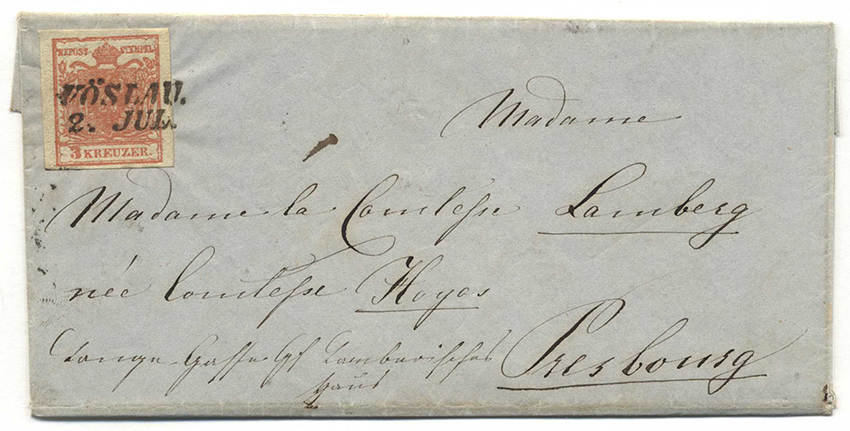 KKPOST-STEMPEL
VÖSLAU.
2. JUL.
3 KREUZER.
Madame
Madame la Comtesse Lamberg
née Comtesse Hoyos
Lange Gasse Gf
Haus
Presbourg